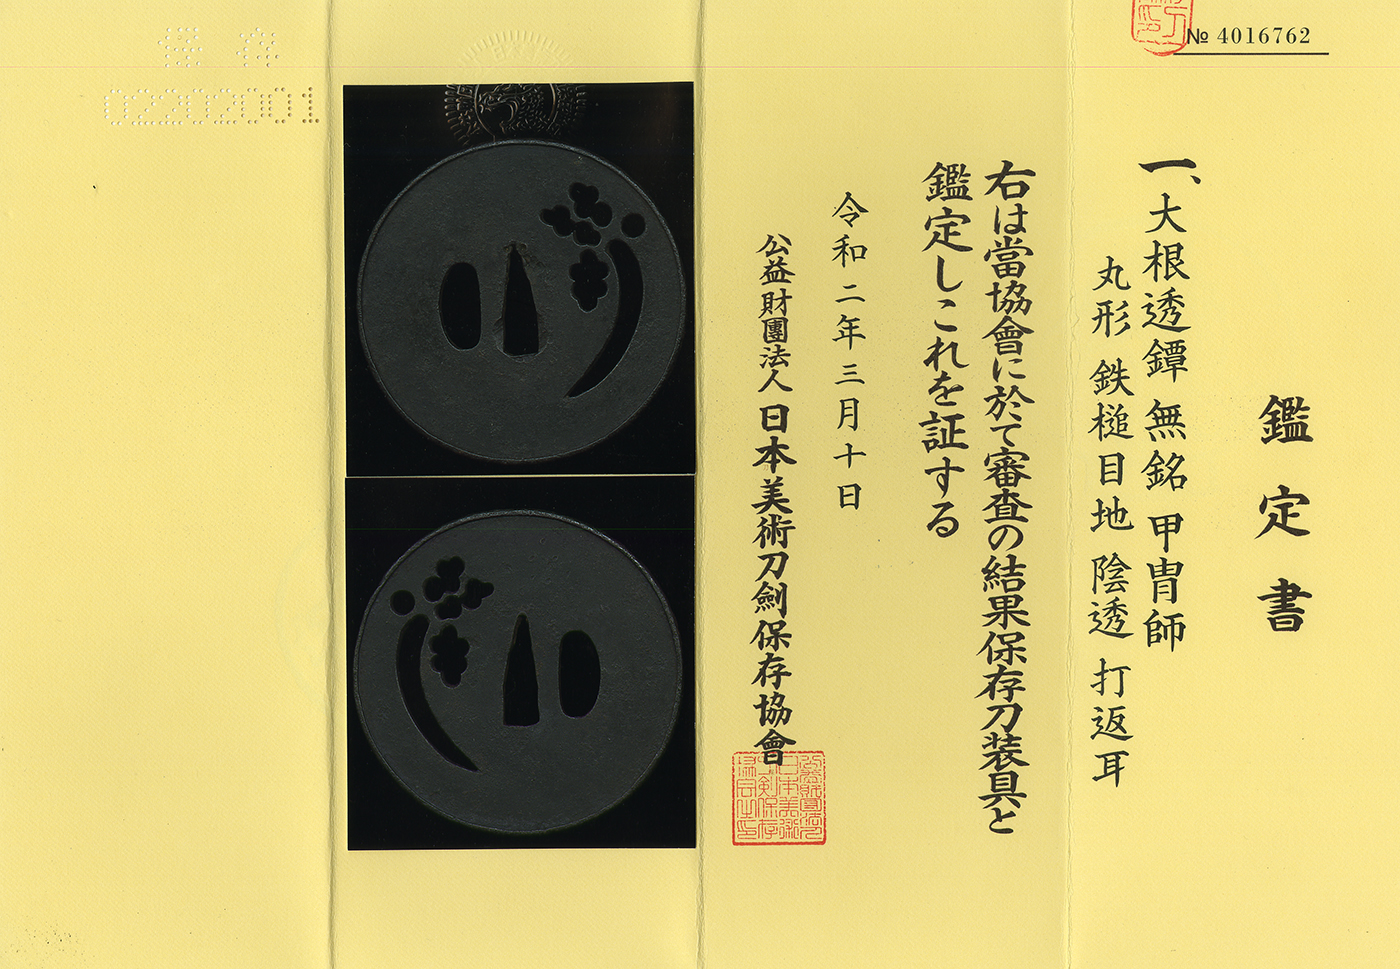 № 4016762
鑑定書
一、大根透鐔 無銘 甲冑師
丸形 鉄槌目地 陰透 打返耳
右は當協會に於て審査の結果保存刀装具と
鑑定しこれを証する
令和二年三月十日
公益財團法人 日本美術刀劍保存協會
保存
02202001